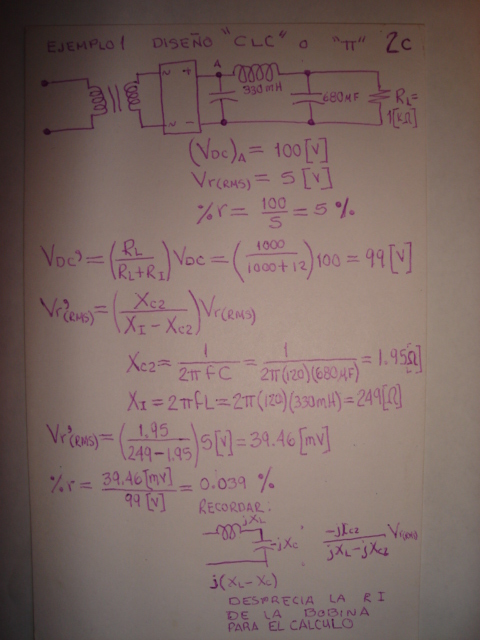 EJEMPLO 1 DISEÑO "CLC" O "π" 2C
~ + A
330mH 680μF RL=
~ - 1[kΩ]
(VDC)A = 100 [V]
Vr(RMS) = 5 [V]
%r = 100/5 = 5 %
VDC' = (RL/(RL+RI)) VDC = (1000/(1000+12)) 100 = 99 [V]
Vr'(RMS) = (XC2/(XI - XC2)) Vr(RMS)
XC2 = 1/(2πfC) = 1/(2π(120)(680μF)) = 1.95[Ω]
XI = 2πfL = 2π(120)(330mH) = 249[Ω]
Vr'(RMS) = (1.95/(249-1.95)) 5[V] = 39.46[mV]
%r = 39.46[mV]/99[V] = 0.039 %
RECORDAR:
jXL
-jXC -jXC2/(jXL-jXC2) Vr(RMS)
j(XL-XC)
DESPRECIA LA RI
DE LA BOBINA
PARA EL CALCULO